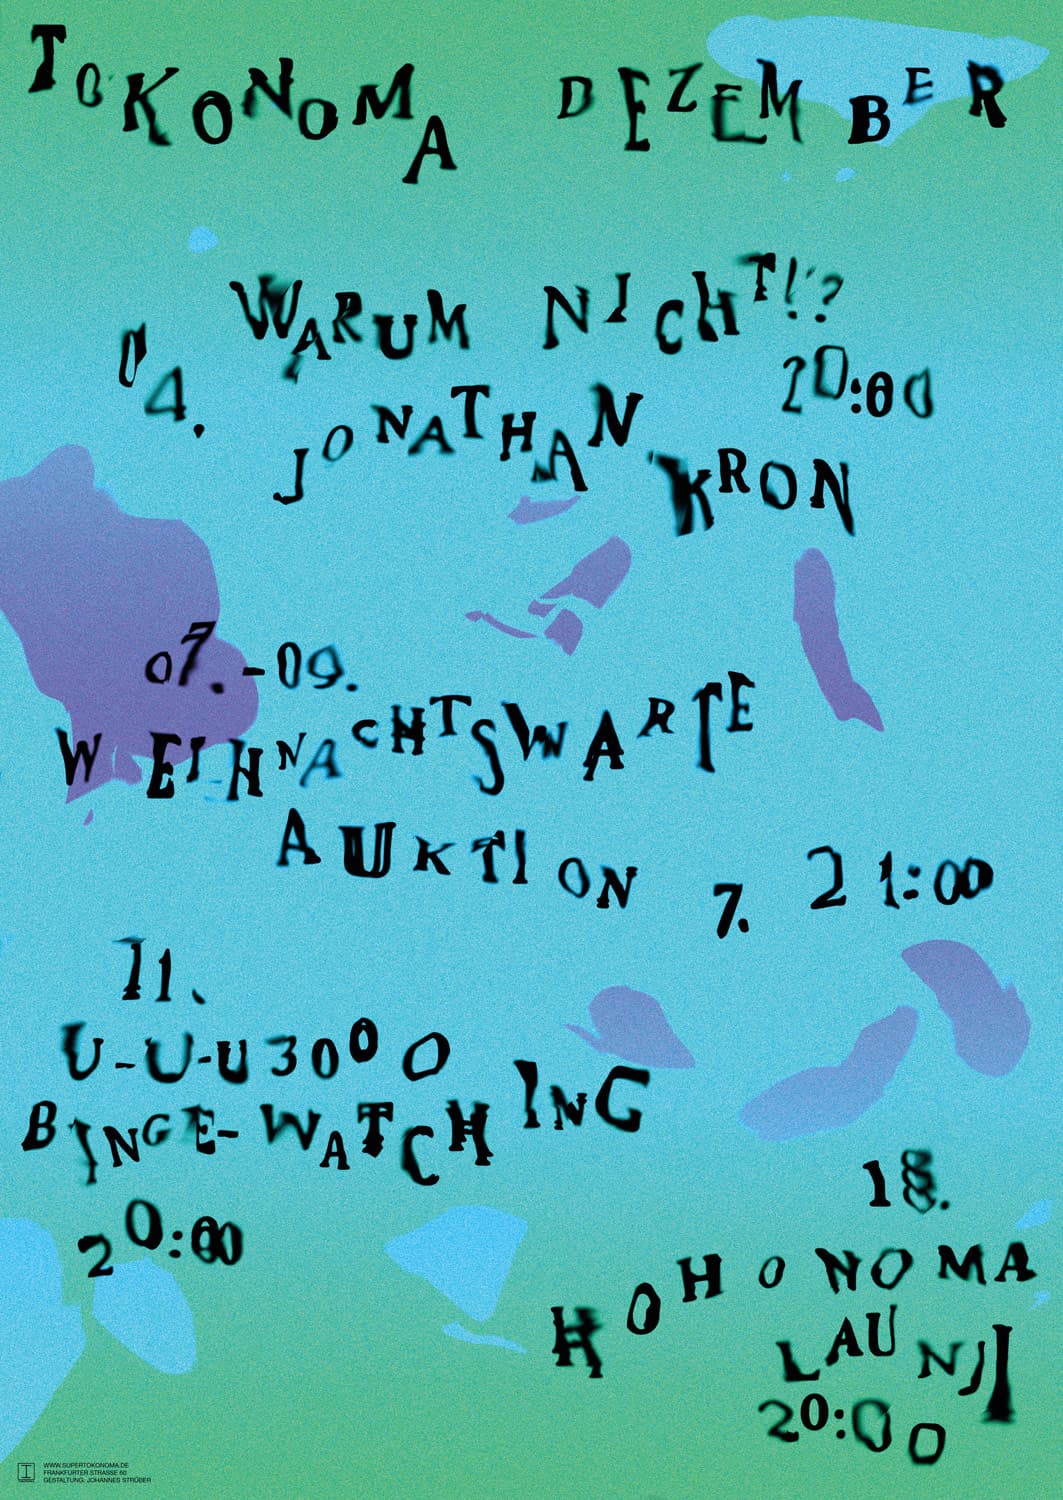 TOKONOMA DEZEMBER
WARUM NICHT!?
04.
20:00
JONATHAN KRON
07.-09.
WEIHNACHTSWARTE
AUKTION 7. 21:00
11.
U-U-U3000
BINGE-WATCHING
20:00
18.
HOHONOMA
LAUNJI
20:00
WWW.SUPERTOKONOMA.DE
FRANKFURTER STRASSE 60
GESTALTUNG: JOHANNES STRÜBER